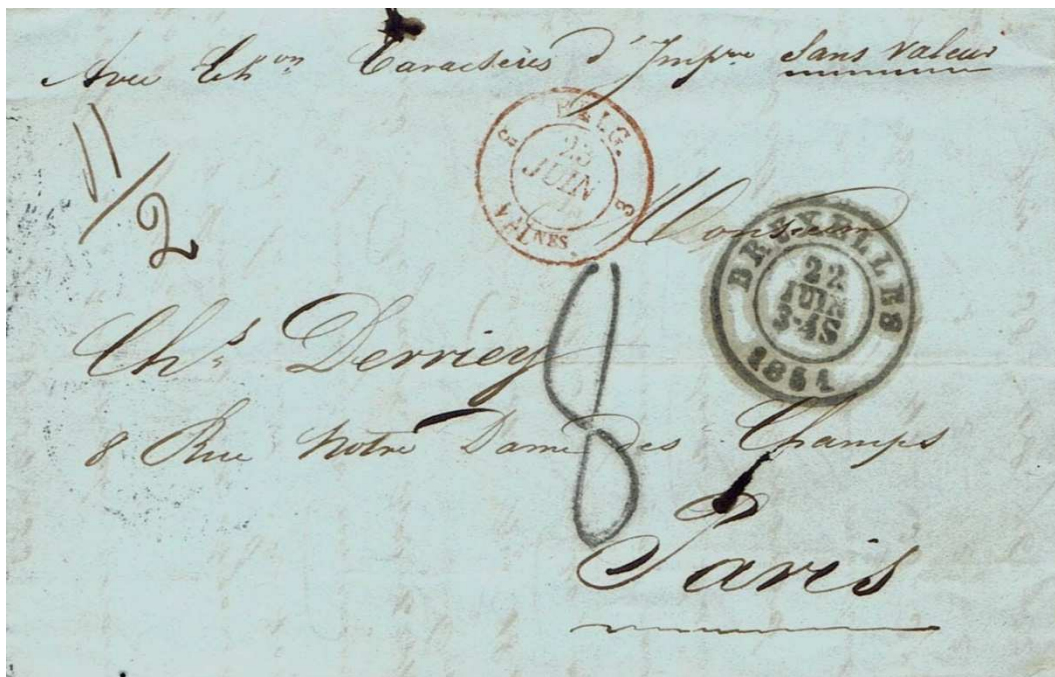 Avec Echon Caractères d'Impie Sans Valeur
11/2
BELG.
3 3
23
JUIN
VALNES
Monsieur
BRUXELLES
22
JUIN
3-4S
1851
Chs Derriey
8
8 Rue Notre Dame des Champs
Paris